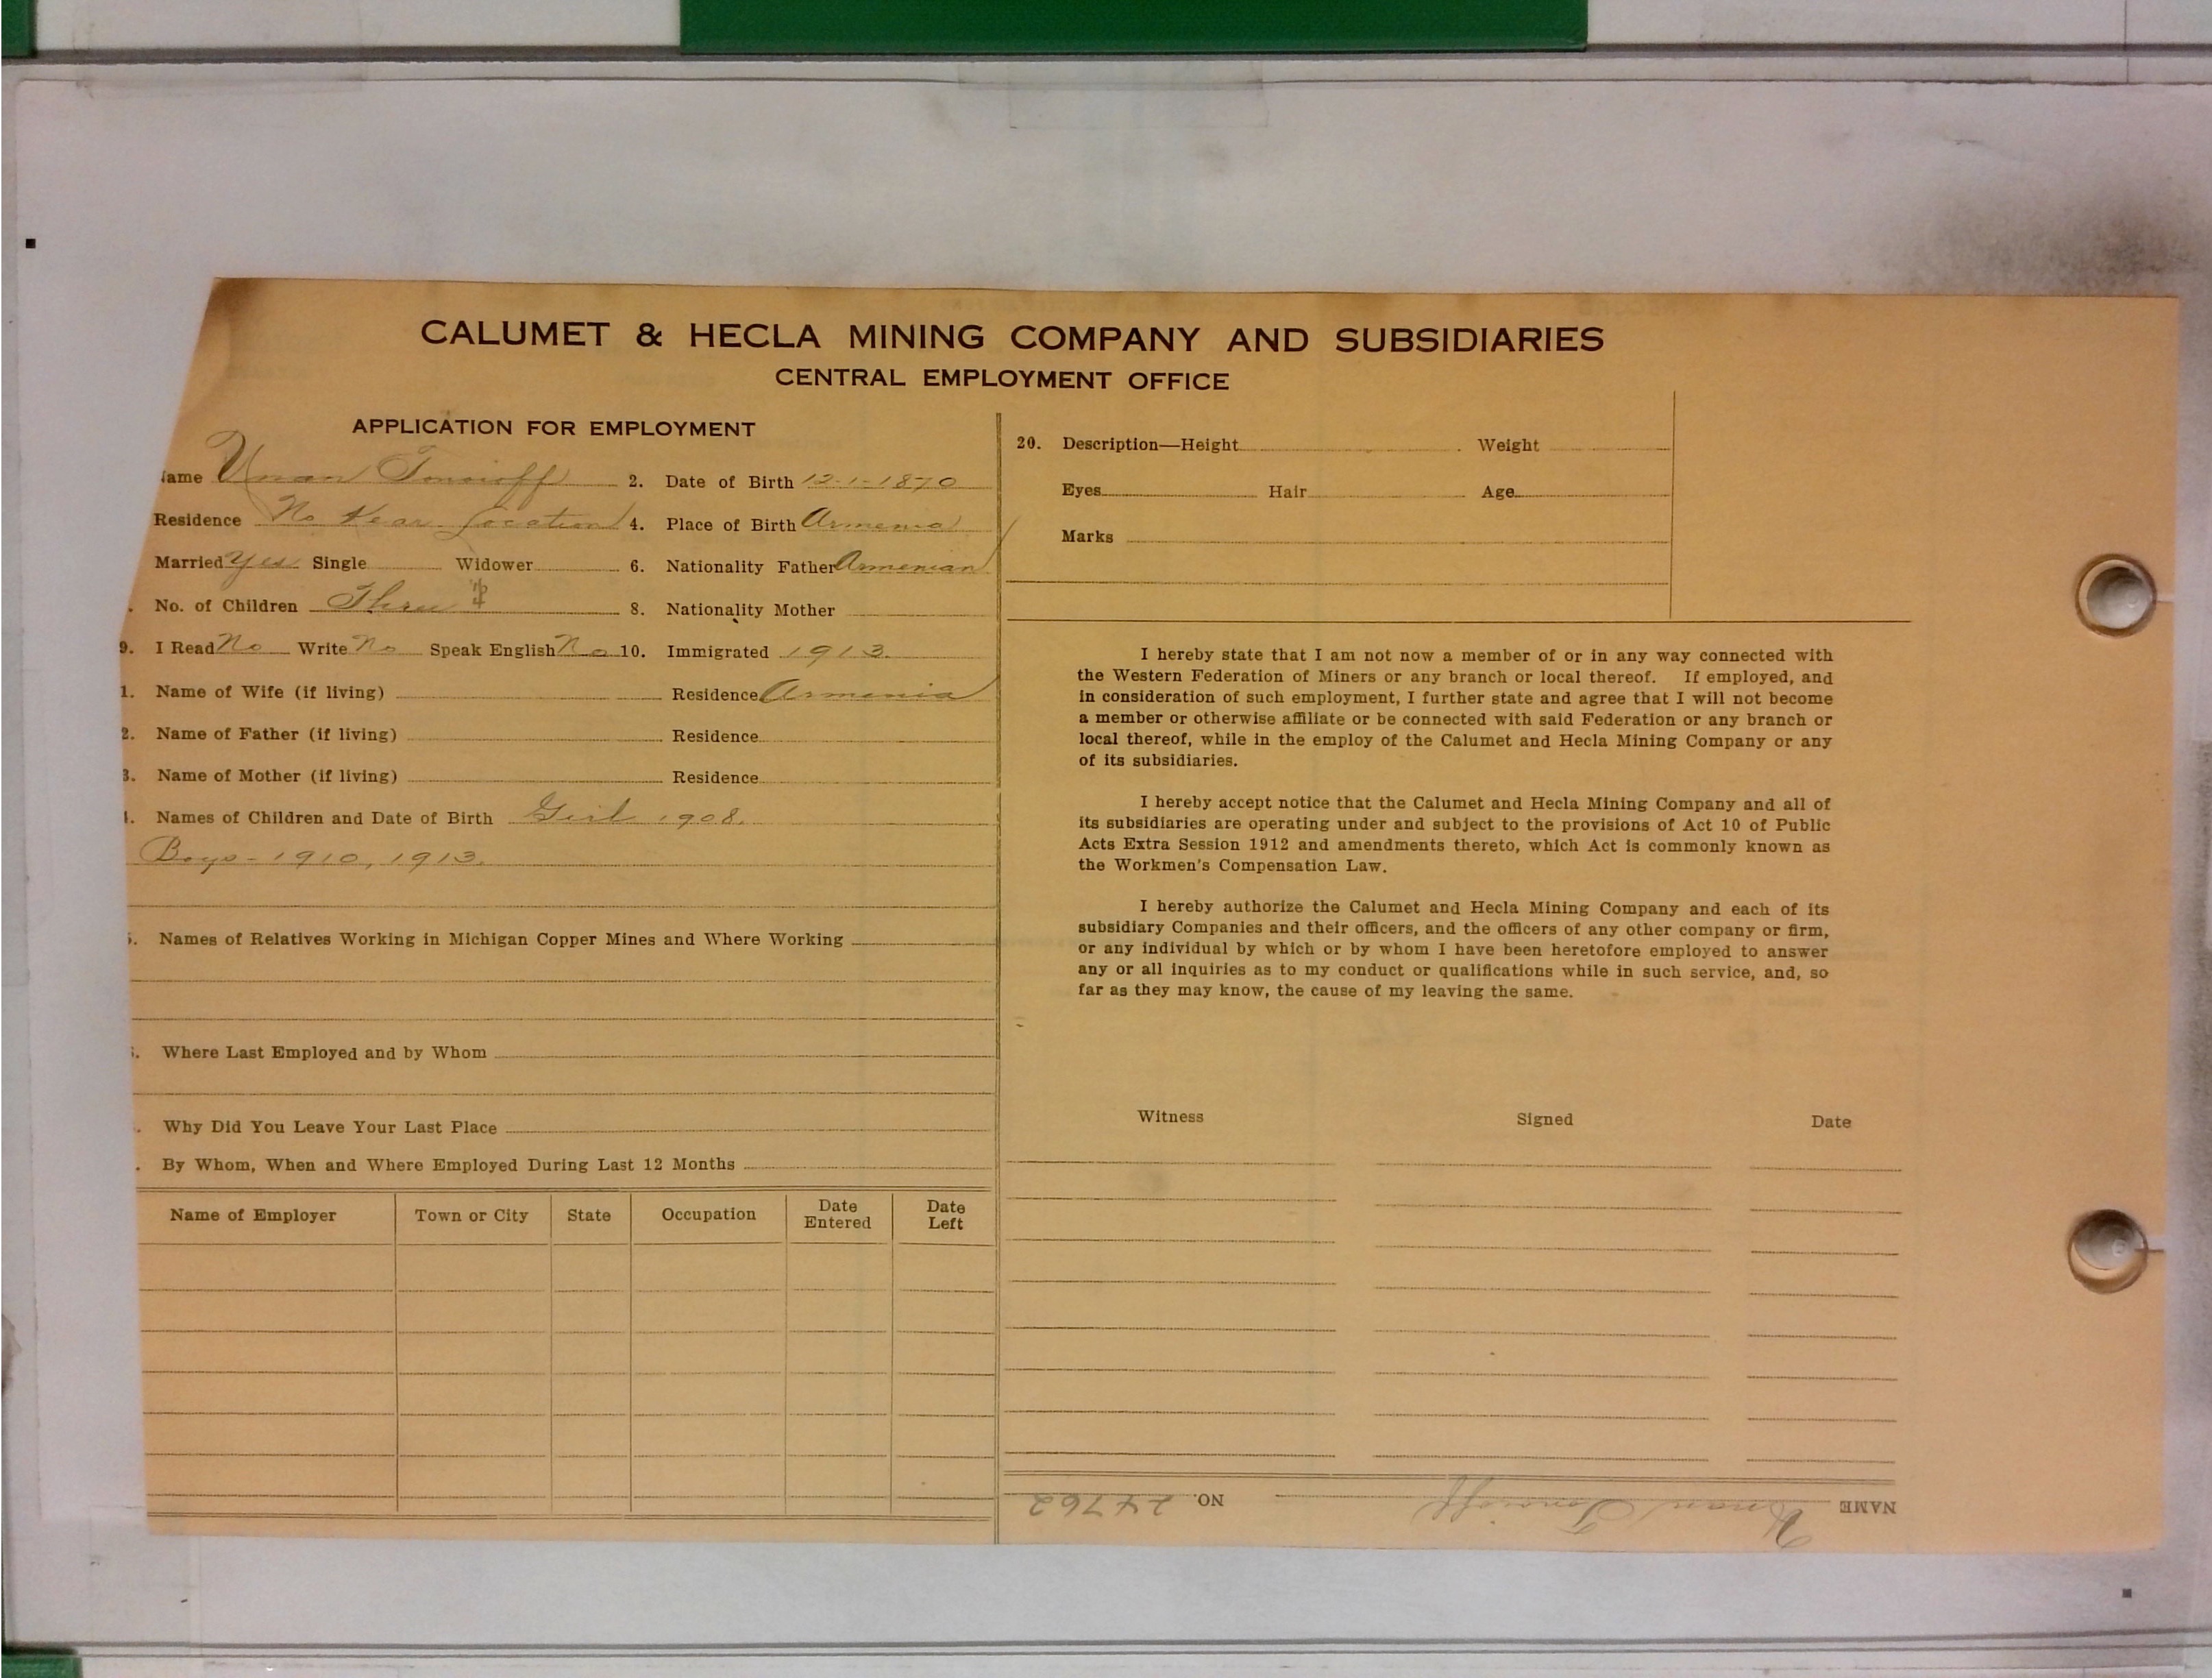 CALUMET & HECLA MINING COMPANY AND SUBSIDIARIES
CENTRAL EMPLOYMENT OFFICE
APPLICATION FOR EMPLOYMENT
ame Uman Tomioff 2. Date of Birth 12-1-1870
Residence No Location 4. Place of Birth Armenia
Married Yes Single Widower 6. Nationality Father Armenian
. No. of Children Three 8. Nationality Mother
9. I Read No Write No Speak English No 10. Immigrated 1913.
1. Name of Wife (if living) Residence Armenia
2. Name of Father (if living) Residence
3. Name of Mother (if living) Residence
Names of Children and Date of Birth Girl 1908.
Boys - 1910, 1913.
Names of Relatives Working in Michigan Copper Mines and Where Working
Where Last Employed and by Whom
. Why Did You Leave Your Last Place
. By Whom, When and Where Employed During Last 12 Months
Name of Employer Town or City State Occupation Date Entered Date Left
20. Description—Height Weight
Eyes Hair Age
Marks
I hereby state that I am not now a member of or in any way connected with
the Western Federation of Miners or any branch or local thereof. If employed, and
in consideration of such employment, I further state and agree that I will not become
a member or otherwise affiliate or be connected with said Federation or any branch or
local thereof, while in the employ of the Calumet and Hecla Mining Company or any
of its subsidiaries.
I hereby accept notice that the Calumet and Hecla Mining Company and all of
its subsidiaries are operating under and subject to the provisions of Act 10 of Public
Acts Extra Session 1912 and amendments thereto, which Act is commonly known as
the Workmen's Compensation Law.
I hereby authorize the Calumet and Hecla Mining Company and each of its
subsidiary Companies and their officers, and the officers of any other company or firm,
or any individual by which or by whom I have been heretofore employed to answer
any or all inquiries as to my conduct or qualifications while in such service, and, so
far as they may know, the cause of my leaving the same.
Witness Signed Date
NAME Uman Tomioff NO. 24762